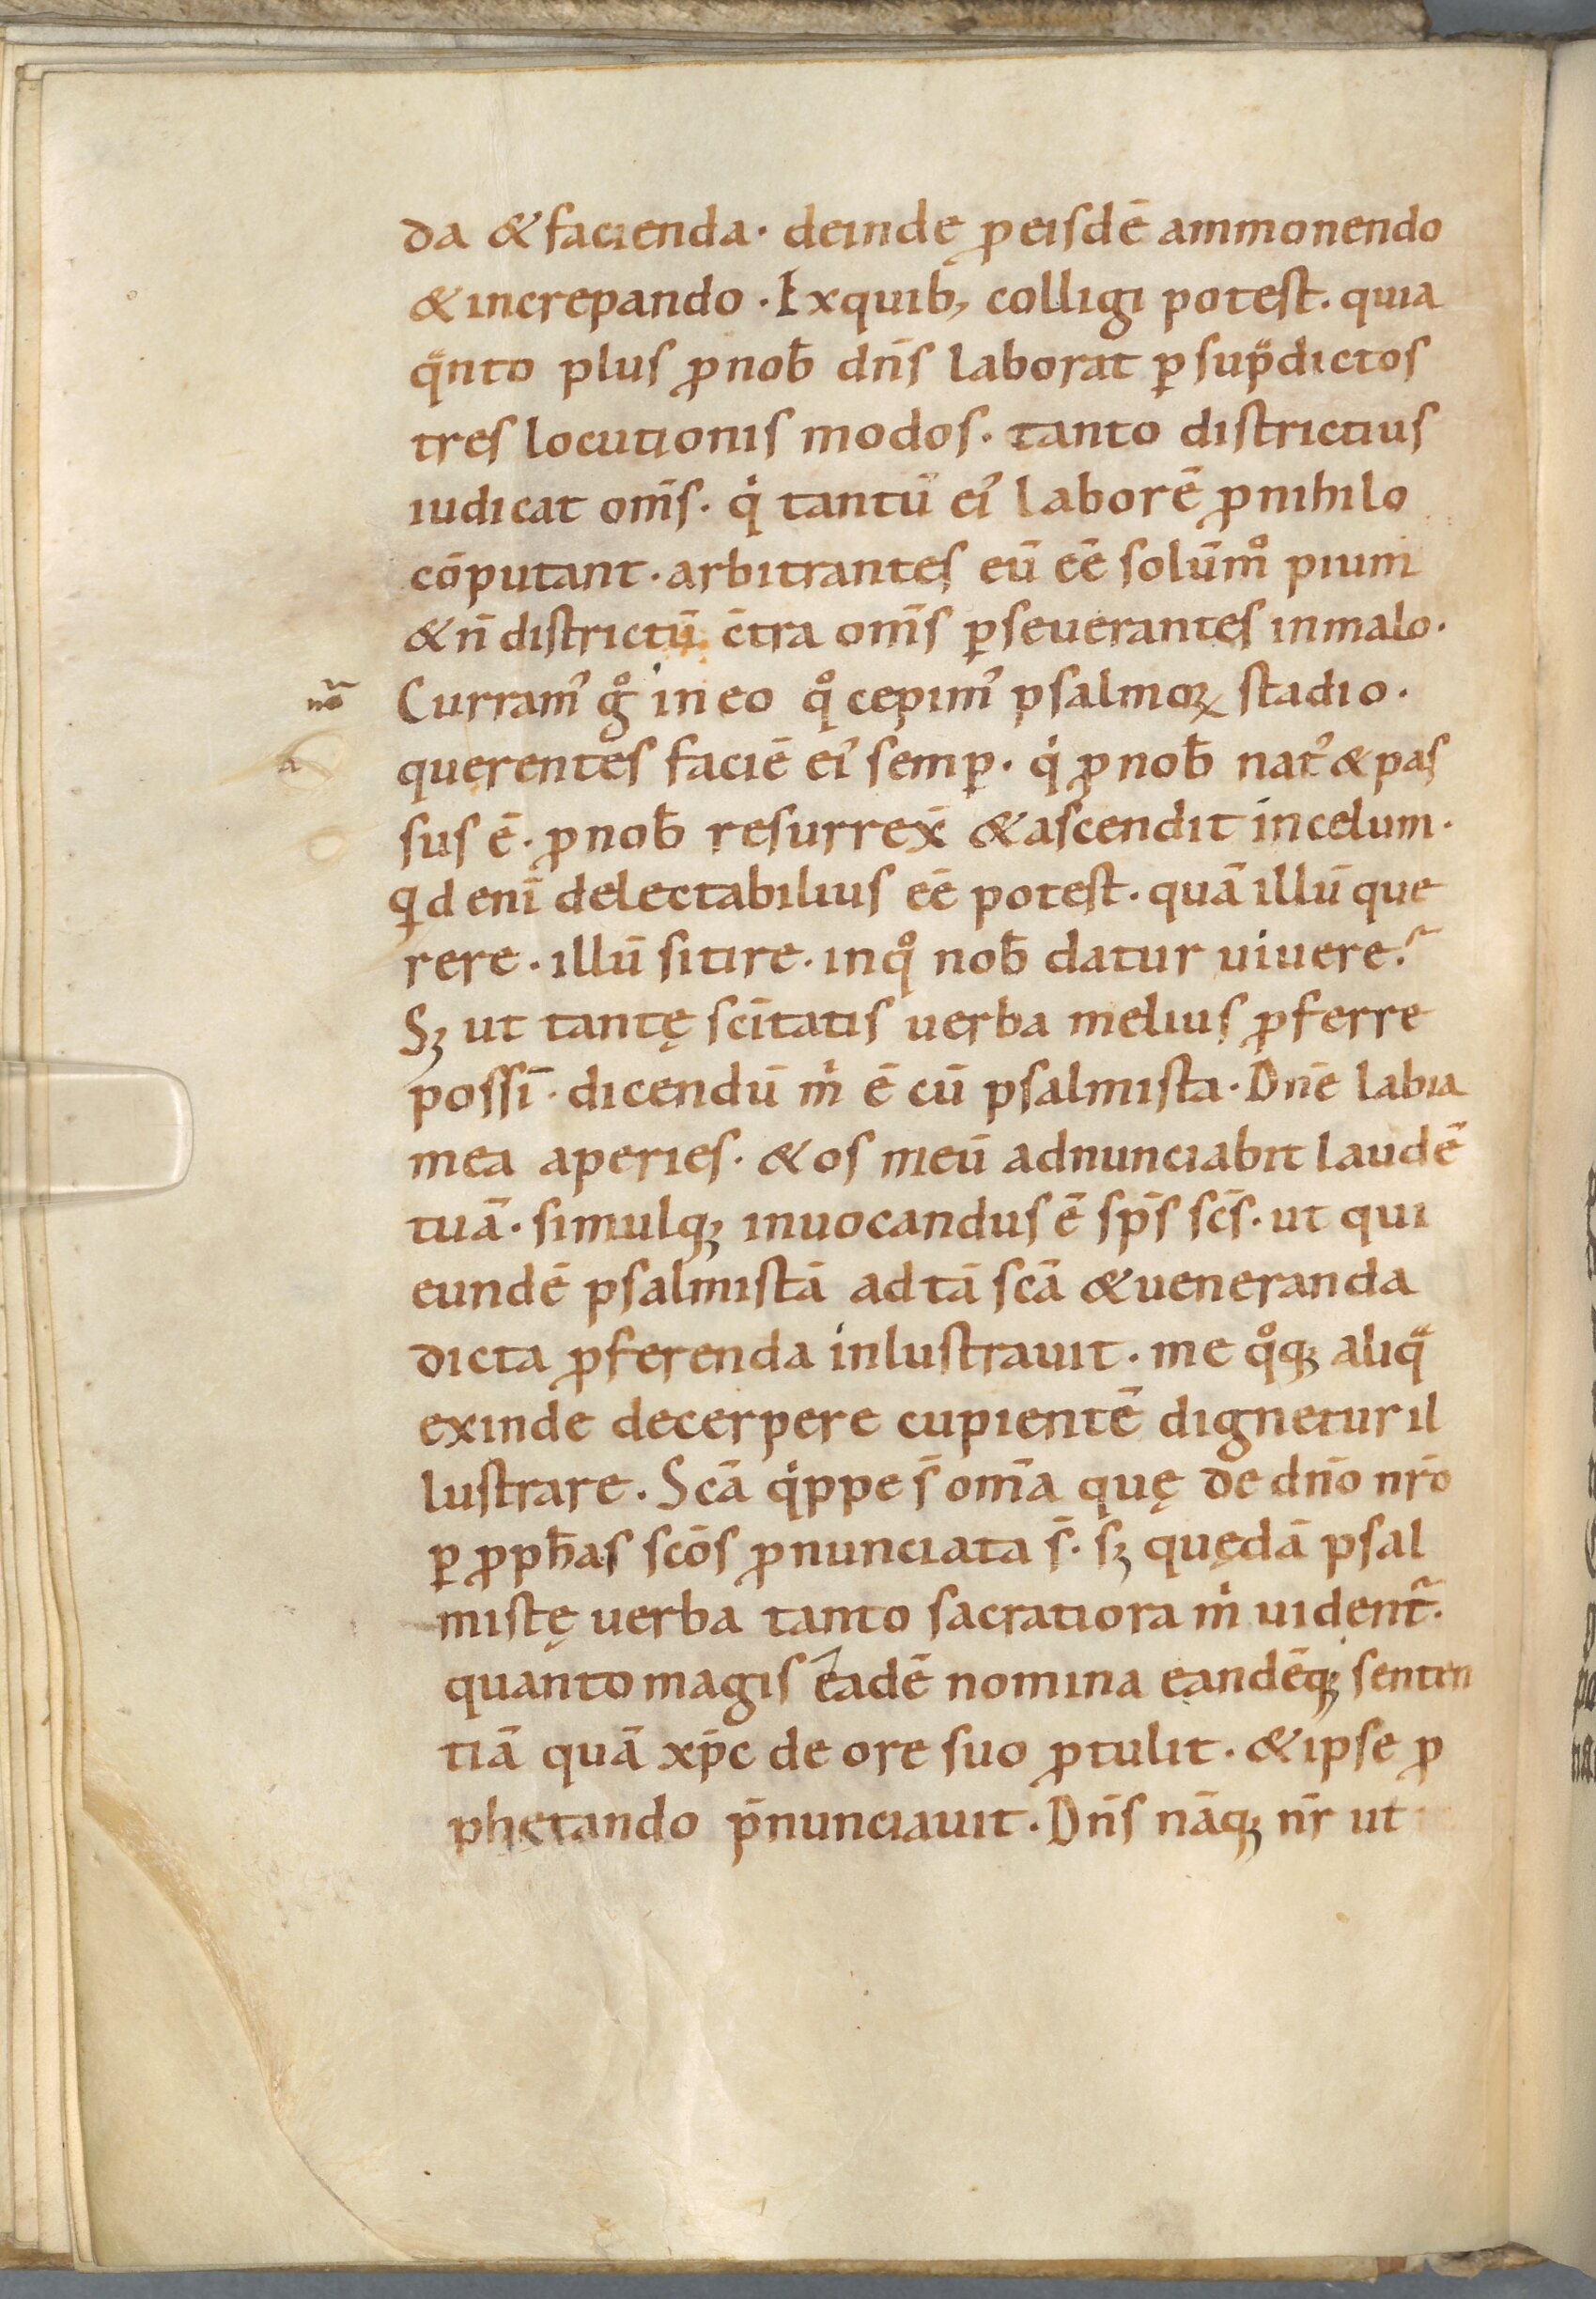 da & facienda. deinde ꝓ eisdē ammonendo
& increpando. Ex quib; colligi potest. quia
qͣnto plus ꝓ nob̄ dn̄s laborat ꝑ sup̄dictos
tres locutionis modos. tanto districtius
iudicat om̄s. qͥ tantū eiꝰ laborē ꝓ nihilo
cōputant. arbitrantes eū eē solūmͦ pium
& n̄ districtū c̄tra om̄s ꝑseuerantes in malo.
nō Curramꝰ gͦ in eo qͦ cepimꝰ psalmoꝝ stadio.
a querentes faciē eiꝰ semꝑ. qͥ ꝓ nob̄ natꝰ & pas
sus ē. ꝓ nob̄ resurrex̄ & ascendit in celum.
qͥd eni̅ delectabilius eē potest. quā illū que
rere. illū sitire. in qͦ nob̄ datur uiuere?
Sꝫ ut tantę sc̄itatis uerba melius ꝓferre
possi̅. dicendū mͥ ē cū psalmista. Dn̄e labia
mea aperies. & os meū adnunciabit laudē
tuā. simulqꝫ inuocandus ē sp̄s sc̄s. ut qui
eundē psalmistā ad tā scā & ueneranda
dicta ꝓferenda inlustrauit. me qͦqꝫ aliqͣ
exinde decerpere cupientē dignetur il
lustrare. Scā qͥppe s̄ om̄a quę de dn̄o nr̄o
ꝑ ꝓph̄as scōs ꝓnunciata s̄. sꝫ quędā psal
mistę uerba tanto sacratiora mͥ uident᷑.
quanto magis eadē nomina eandēqꝫ senten
tiā quā xp̄c de ore suo ꝓtulit. & ipse ꝓ
phetando p̄nunciauit. Dn̄s nāqꝫ nr̄ ut